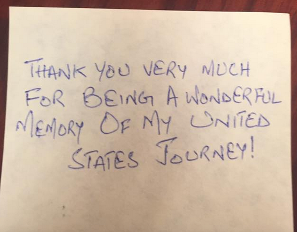 THANK YOU VERY MUCH
FOR BEING A WONDERFUL
MEMORY OF MY UNITED
STATES JOURNEY!